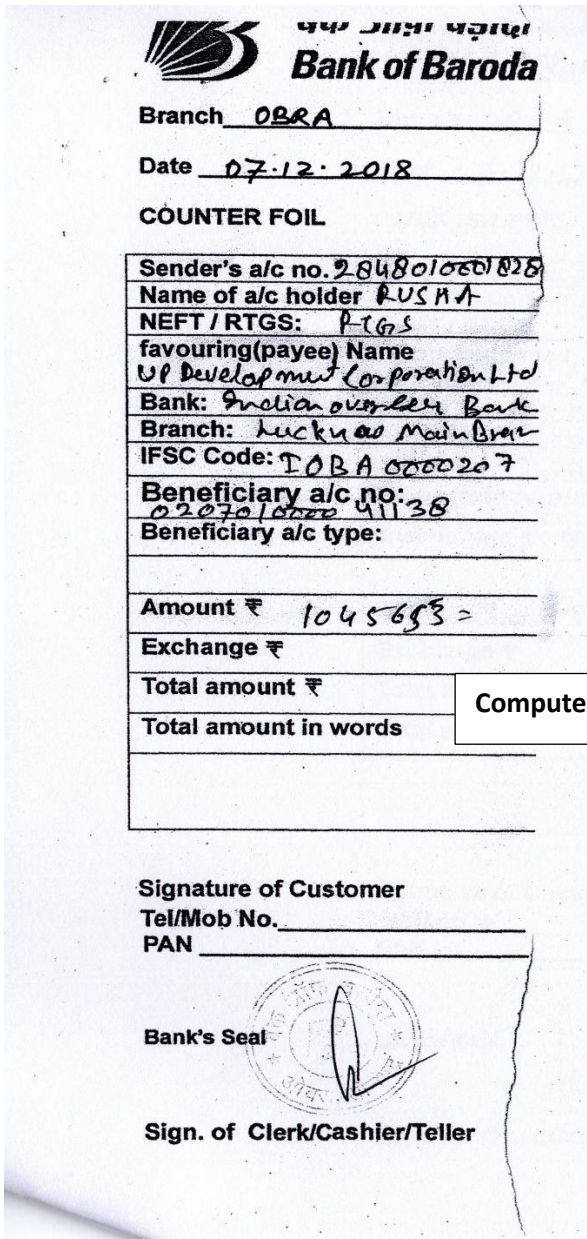 Bank of Baroda
Branch OBRA
Date 07.12.2018
COUNTER FOIL
Sender's a/c no. 28480100001828
Name of a/c holder RUSHA
NEFT / RTGS: RTGS
favouring(payee) Name
UP Development Corporation Ltd
Bank: Indian overseas Bank
Branch: Lucknow Main
IFSC Code: IOBA0000207
Beneficiary a/c no:
020701000041138
Beneficiary a/c type:
Amount ₹
Exchange ₹
Total amount ₹
Compute
Total amount in words
Signature of Customer
Tel/Mob No.
PAN
Bank's Seal
Sign. of Clerk/Cashier/Teller